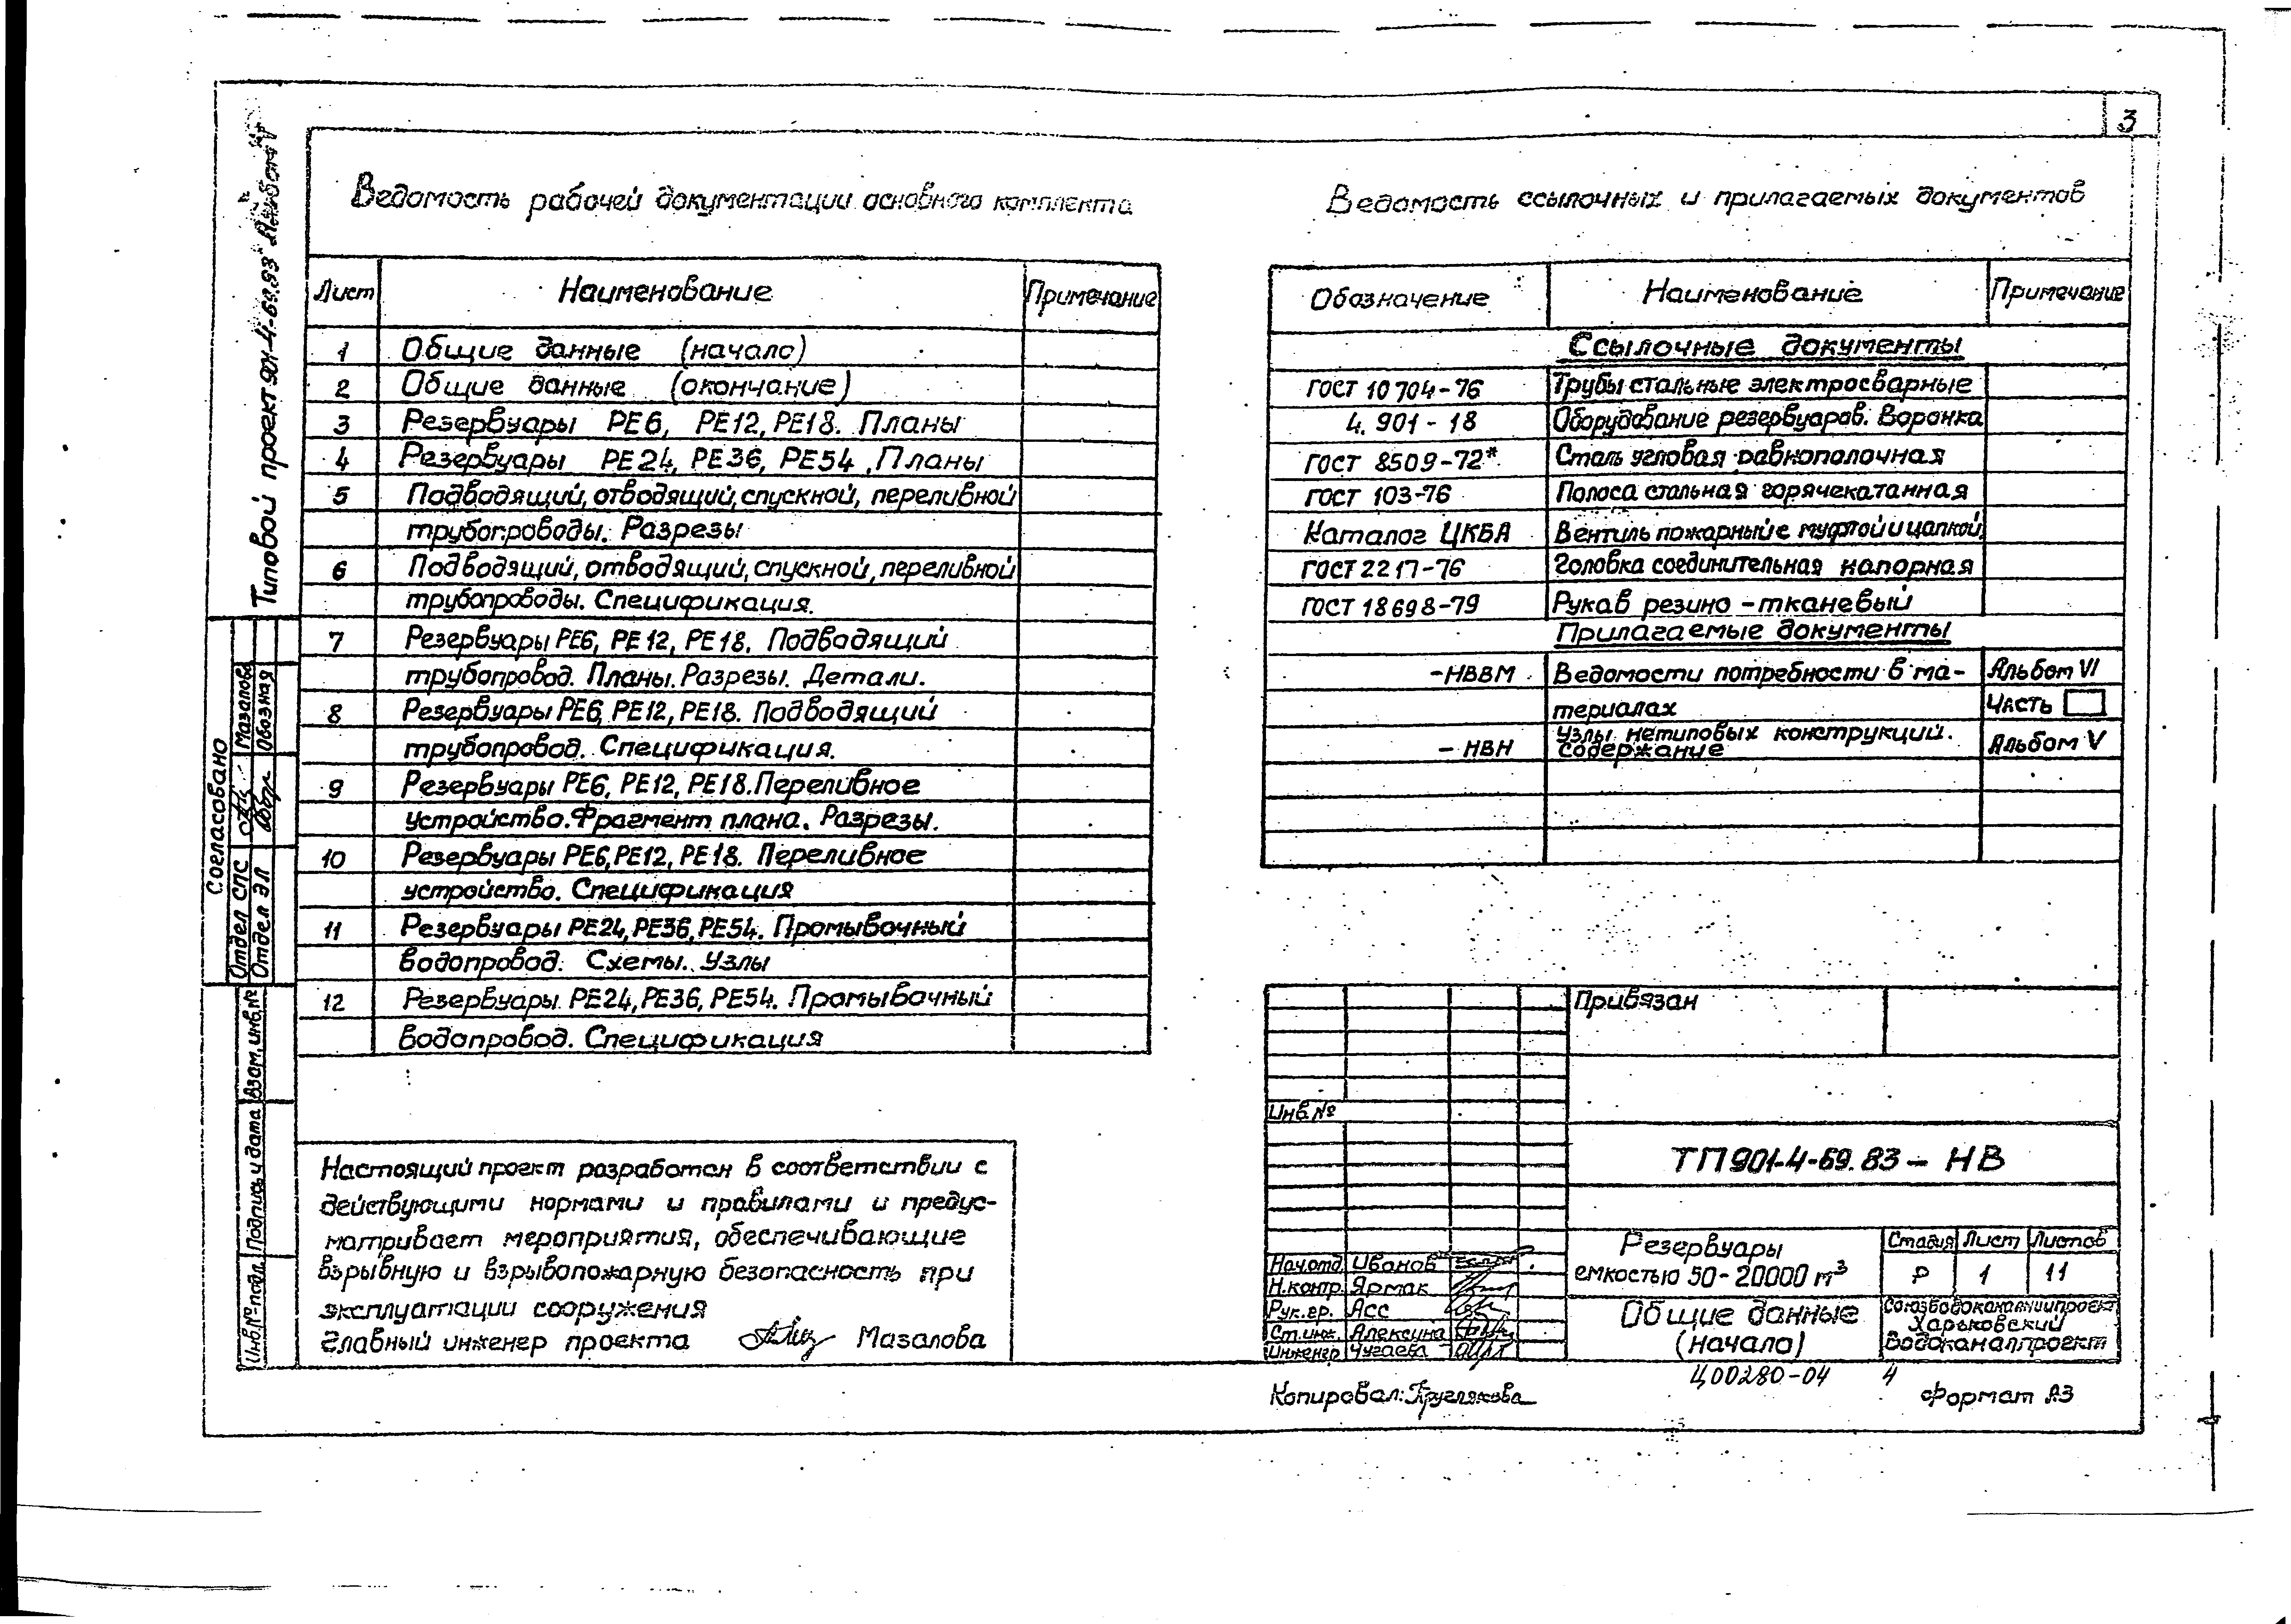 3
Типовой проект 901-4-69.83 Альбом V
Ведомость рабочей документации основного комплекта
Лист Наименование Примечание
1 Общие данные (начало)
2 Общие данные (окончание)
3 Резервуары РЕ6, РЕ12, РЕ18. Планы
4 Резервуары РЕ24, РЕ36, РЕ54. Планы
5 Подводящий, отводящий, спускной, переливной
трубопроводы. Разрезы
6 Подводящий, отводящий, спускной, переливной
трубопроводы. Спецификация.
7 Резервуары РЕ6, РЕ12, РЕ18. Подводящий
трубопровод. Планы. Разрезы. Детали.
8 Резервуары РЕ6, РЕ12, РЕ18. Подводящий
трубопровод. Спецификация.
9 Резервуары РЕ6, РЕ12, РЕ18. Переливное
устройство. Фрагмент плана. Разрезы.
10 Резервуары РЕ6, РЕ12, РЕ18. Переливное
устройство. Спецификация
11 Резервуары РЕ24, РЕ36, РЕ54. Промывочный
водопровод. Схемы. Узлы
12 Резервуары РЕ24, РЕ36, РЕ54. Промывочный
водопровод. Спецификация
Ведомость ссылочных и прилагаемых документов
Обозначение Наименование Примечание
Ссылочные документы
ГОСТ 10704-76 Трубы стальные электросварные
4.901-18 Оборудование резервуаров. Воронка
ГОСТ 8509-72* Сталь угловая равнополочная
ГОСТ 103-76 Полоса стальная горячекатанная
Каталог ЦКБА Вентиль пожарный с муфтой и цапкой
ГОСТ 2217-76 Головка соединительная напорная
ГОСТ 18698-79 Рукав резино-тканевый
Прилагаемые документы
-НВВМ Ведомости потребности в ма- Альбом VI
териалах Часть
-НВН Узлы нетиповых конструкций. Альбом V
Содержание
Согласовано
Отдел СПС Мазалова
Отдел ЭЛ Обозная
Взам. инв. №
Подпись и дата
Инв. № подл.
Настоящий проект разработан в соответствии с
действующими нормами и правилами и предус-
матривает мероприятия, обеспечивающие
взрывную и взрывопожарную безопасность при
эксплуатации сооружения
Главный инженер проекта Мазалова
Привязан
Инв. №
ТП 901-4-69.83 - НВ
Нач.отд. Иванов
Н.контр. Ярмак
Рук.гр. Асс
Ст.инж. Алексина
Инженер Чугаева
Резервуары
емкостью 50-20000 м³
Стадия Лист Листов
Р 1 11
Общие данные
(начало)
Союзводоканалниипроект
Харьковский
Водоканалпроект
Копировал: Круглякова
Ц00280-04 4
Формат А3